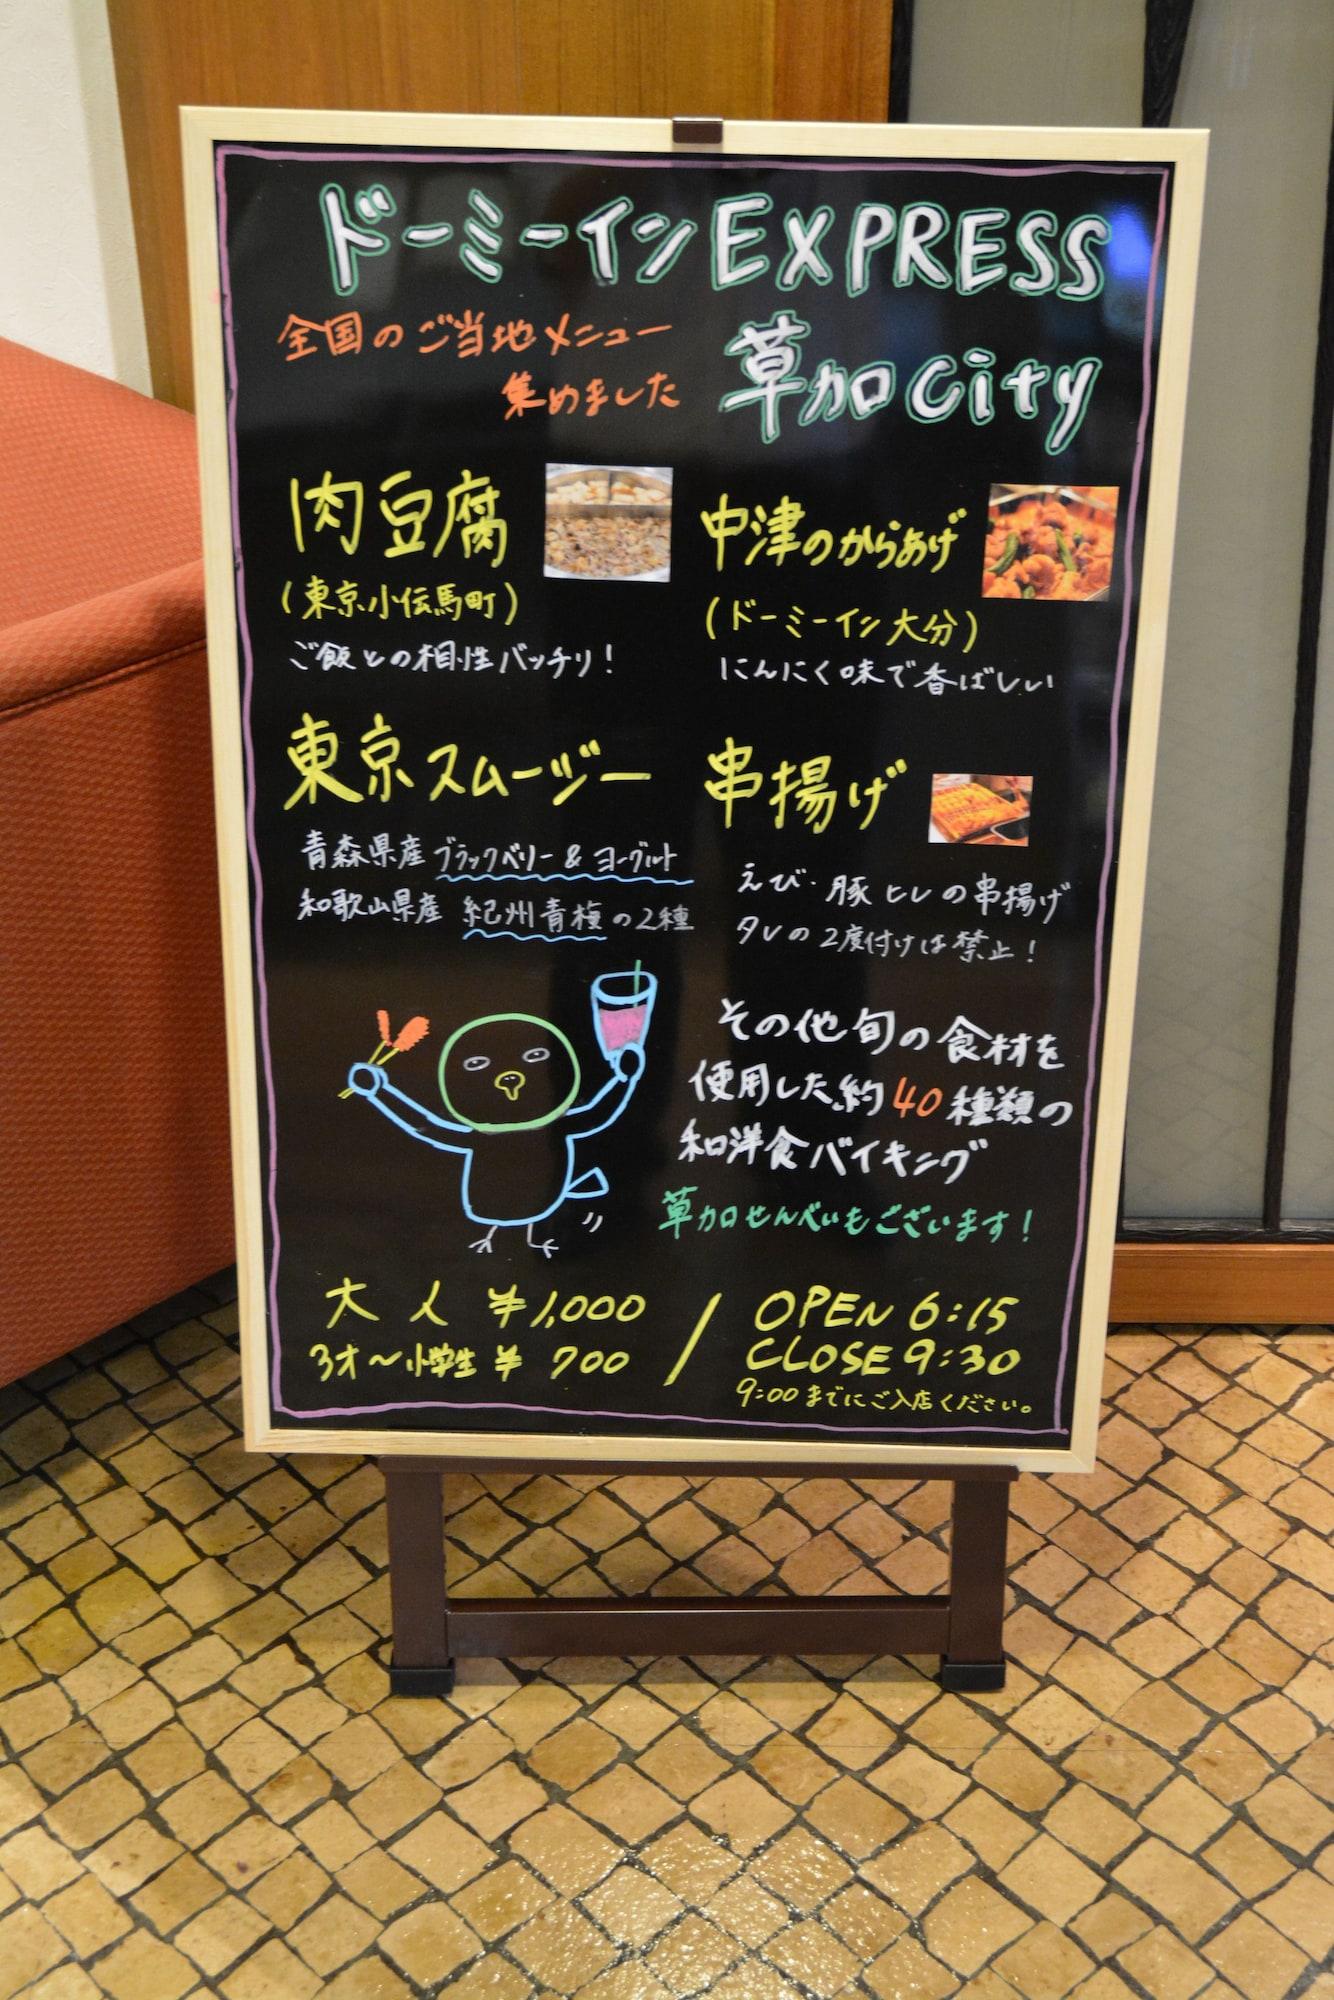 ドーミーインEXPRESS
草加city
全国のご当地メニュー
集めました
肉豆腐
(東京小伝馬町)
ご飯との相性バッチリ!
中津のからあげ
(ドーミーイン大分)
にんにく味で香ばしい
東京スムージー
青森県産ブラックベリー&ヨーグルト
和歌山県産 紀州青梅の2種
串揚げ
えび・豚ヒレの串揚げ
タレの2度付けは禁止!
その他旬の食材を
使用した約40種類の
和洋食バイキング
草加せんべいもございます!
大人 ¥1,000
3才~小学生 ¥ 700
OPEN 6:15
CLOSE 9:30
9:00までにご入店ください。